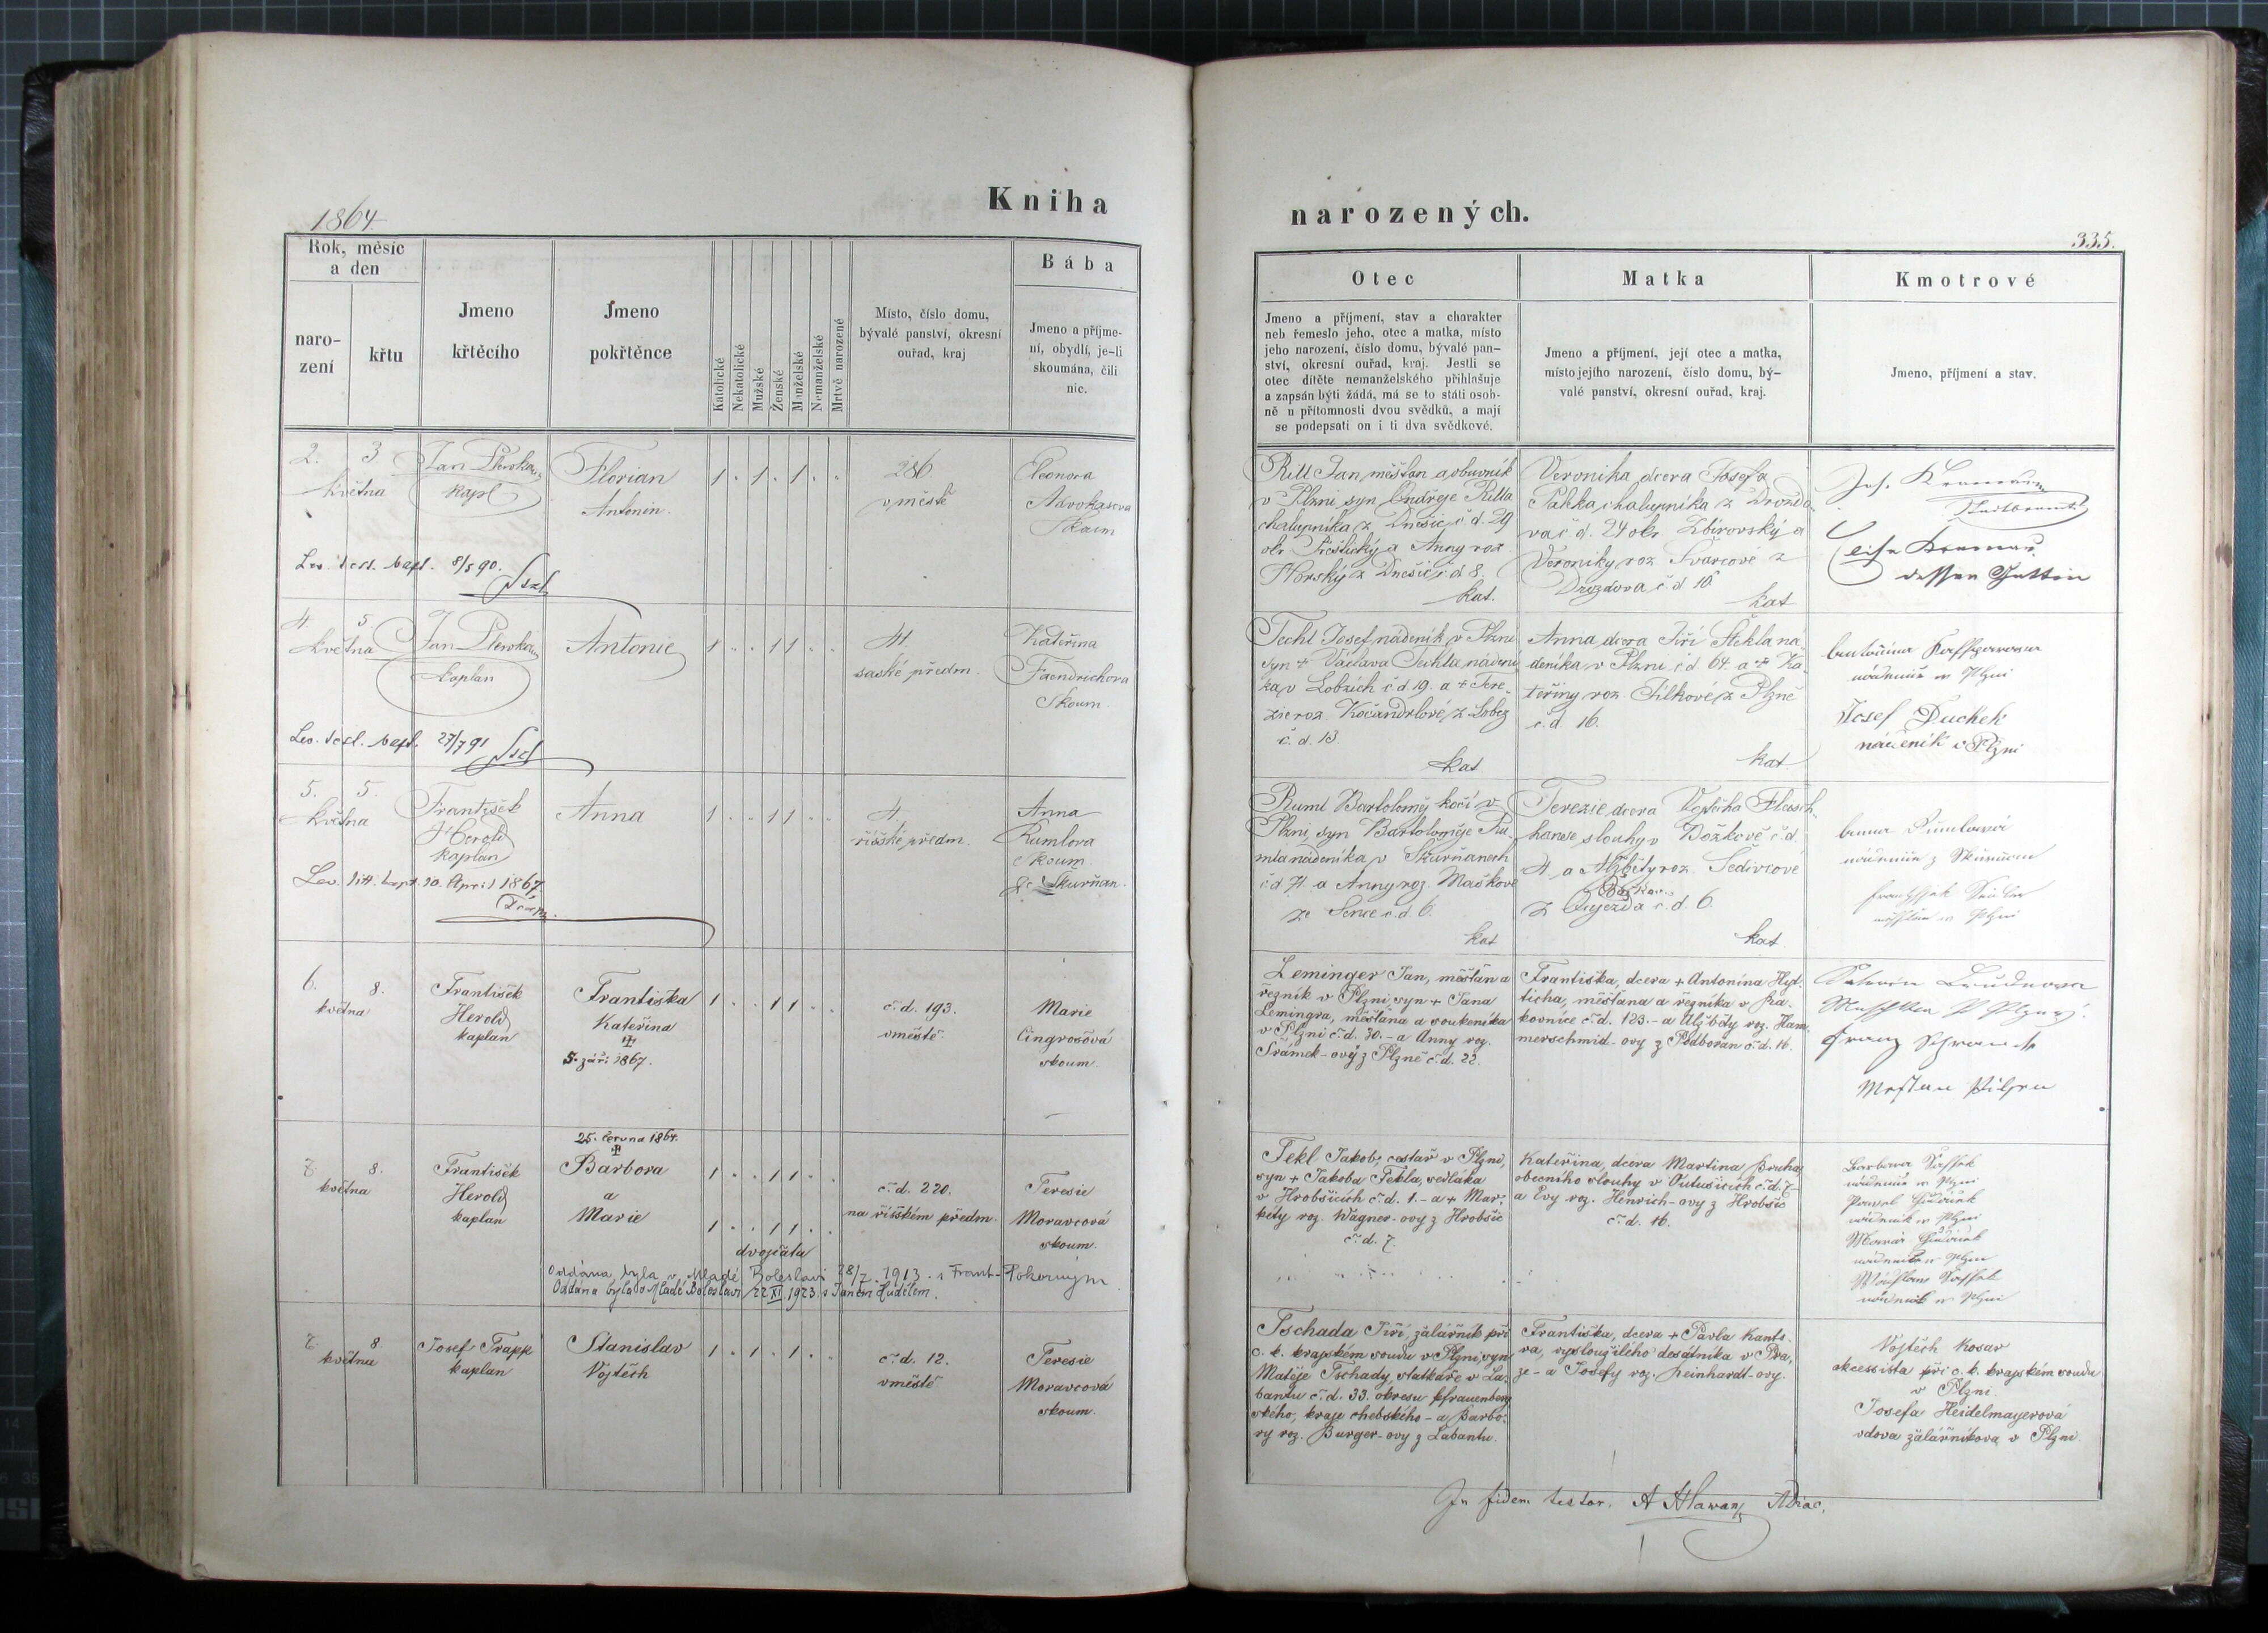 Kniha
1864
Rok, měsíc
a den
naro-
zení
křtu
Jmeno
křtěcího
Jmeno
pokřtěnce
Katolické
Nekatolické
Mužské
Ženské
Manželské
Nemanželské
Mrtvě narozené
Místo, číslo domu,
bývalé panství, okresní
ouřad, kraj
Bába
Jmeno a příjme-
ní, obydlí, je-li
skoumána, čili
nic.
2. 3
května
Jan
kapl
Florian
Antonin.
1 . 1 . 1 . .
286
v městě
Eleonora
Skoum
8/8 90.
4. 5.
května
Jan
kaplan
Antonie
1 . . 1 1 . .
4.
saské předm.
Kateřina
Faendrichova
Skoum.
27/7 91
5. 5.
května
František
Herold
kaplan
Anna
1 . . 1 1 . .
4.
říšské předm.
Anna
Rumlova
skoum.
ze Skurňan.
Lev. litt. bapt. 10. April 1867.
6. 8.
května
František
Herold
kaplan
Františka
Kateřina
5. září 1867.
1 . . 1 1 . .
č. d. 193.
v městě.
Marie
Cingrošová
skoum.
25. června 1864.
7. 8.
května
František
Herold
kaplan
Barbora
a
Marie
dvojčata
1 . . 1 1 . .
1 . . 1 1 . .
č. d. 220.
na říšském předm.
Teresie
Moravcová
skoum.
Oddána byla v Mladé Boleslavi 28/7. 1913. s Frant. Pokorným
Oddána byla v Mladé Boleslavi 22.XI.1923 s Janem Hudělem.
7. 8.
května
Josef Trapp
kaplan
Stanislav
Vojtěch
1 . 1 . 1 . .
č. d. 12.
v městě
Teresie
Moravcová
skoum.
narozených.
335.
Otec
Jmeno a příjmení, stav a charakter
neb řemeslo jeho, otec a matka, místo
jeho narození, číslo domu, bývalé pan-
ství, okresní ouřad, kraj. Jestli se
otec dítěte nemanželského přihlašuje
a zapsán býti žádá, má se to státi osob-
ně u přítomnosti dvou svědků, a mají
se podepsati on i ti dva svědkové.
Matka
Jmeno a příjmení, její otec a matka,
místo jejího narození, číslo domu, bý-
valé panství, okresní ouřad, kraj.
Kmotrové
Jmeno, příjmení a stav.
Rill Jan, měšťan a obuvník
v Plzni syn Ondřeje Rilla
chalupníka z Dnešic č d. 29
okr. Přeštický a Anny roz.
Horský z Dnešic č d 8.
kat.
Veronika dcera Josefa
chalupníka z Drozdo-
va č. d. 24 okr. Zbirovský a
Veroniky roz Švarcové z
Drozdova č. d 16
kat
Techl Josef nádeník v Plzni
syn + Václava Techla nádení-
ka v Lobzích č d 19. a + Tere-
zie roz. Kočandrlové z Lobez
č. d. 13.
kat
Anna dcera Jiří Štěkla ná-
deníka v Plzni č d 64. a + Ka-
teřiny roz. Filkové z Plzně
č. d. 16.
kat.
nádeník v Plzni
Josef Duchek
nádeník v Plzni
Ruml Bartoloměj kočí v
Plzni, syn Bartoloměje Ru-
mla nádeníka v Skurňanech
č d 4. a Anny roz. Maškové
ze Sence č. d. 6.
kat
Terezie dcera Vojtěcha
slouhy v Božkově č. d.
4. a Alžběty roz. Šedivcové
z Oujezda č. d. 6.
kat.
Leminger Jan, měšťan a
řezník v Plzni, syn + Jana
Lemingra, měšťana a soukeníka
v Plzni č. d. 30. - a Anny roz.
Šrámek-ový z Plzně č. d. 22.
Františka, dcera + Antonína Hyt-
ticha, měšťana a řezníka v Ra-
kovníce č. d. 123. - a Alžběty roz. Ham-
merschmid-ovy z Podbořan č. d. 16.
Franz
Tekl Jakob, cestař v Plzni,
syn + Jakoba Tekla, sedláka
v Hrobšicích č. d. 1. - a + Mar-
kéty roz. Wagner-ovy z Hrobšic
č. d. 7.
Kateřina, dcera Martina Bruha,
obecního slouhy v Outušicích č. d. 7.
a Evy roz. Henrich-ovy z Hrobšic
č. d. 16.
Tschada Jiří, žalářník při
c. k. krajském soudu v Plzni, syn
Matěje Tschady, statkáře v La-
bantu č. d. 33. okresu Pfrauenberg-
ského, kraje chebského - a Barbo-
ry roz. Burger-ovy z Labantu.
Františka, dcera + Pavla Kants-
ra, vysloužilého desátníka v Pra-
ze - a Josefy roz. Leinhardt-ovy.
Vojtěch Kosar
akcessista při c. k. krajském soudu
v Plzni.
Josefa Heidelmayerová
vdova žalářníkova v Plzni.
In fidem testor.